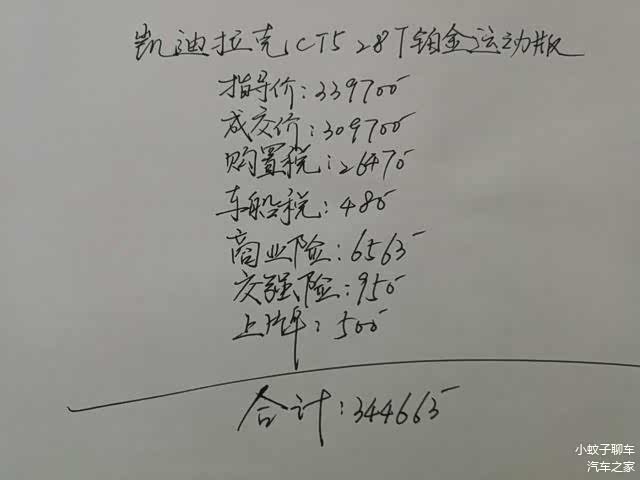 凯迪拉克CT5 28T铂金运动版
指导价:339700
成交价:309700
购置税:26470
车船税:480
商业险:6563
交强险:950
上牌:500
合计:344663
小蚊子聊车
汽车之家